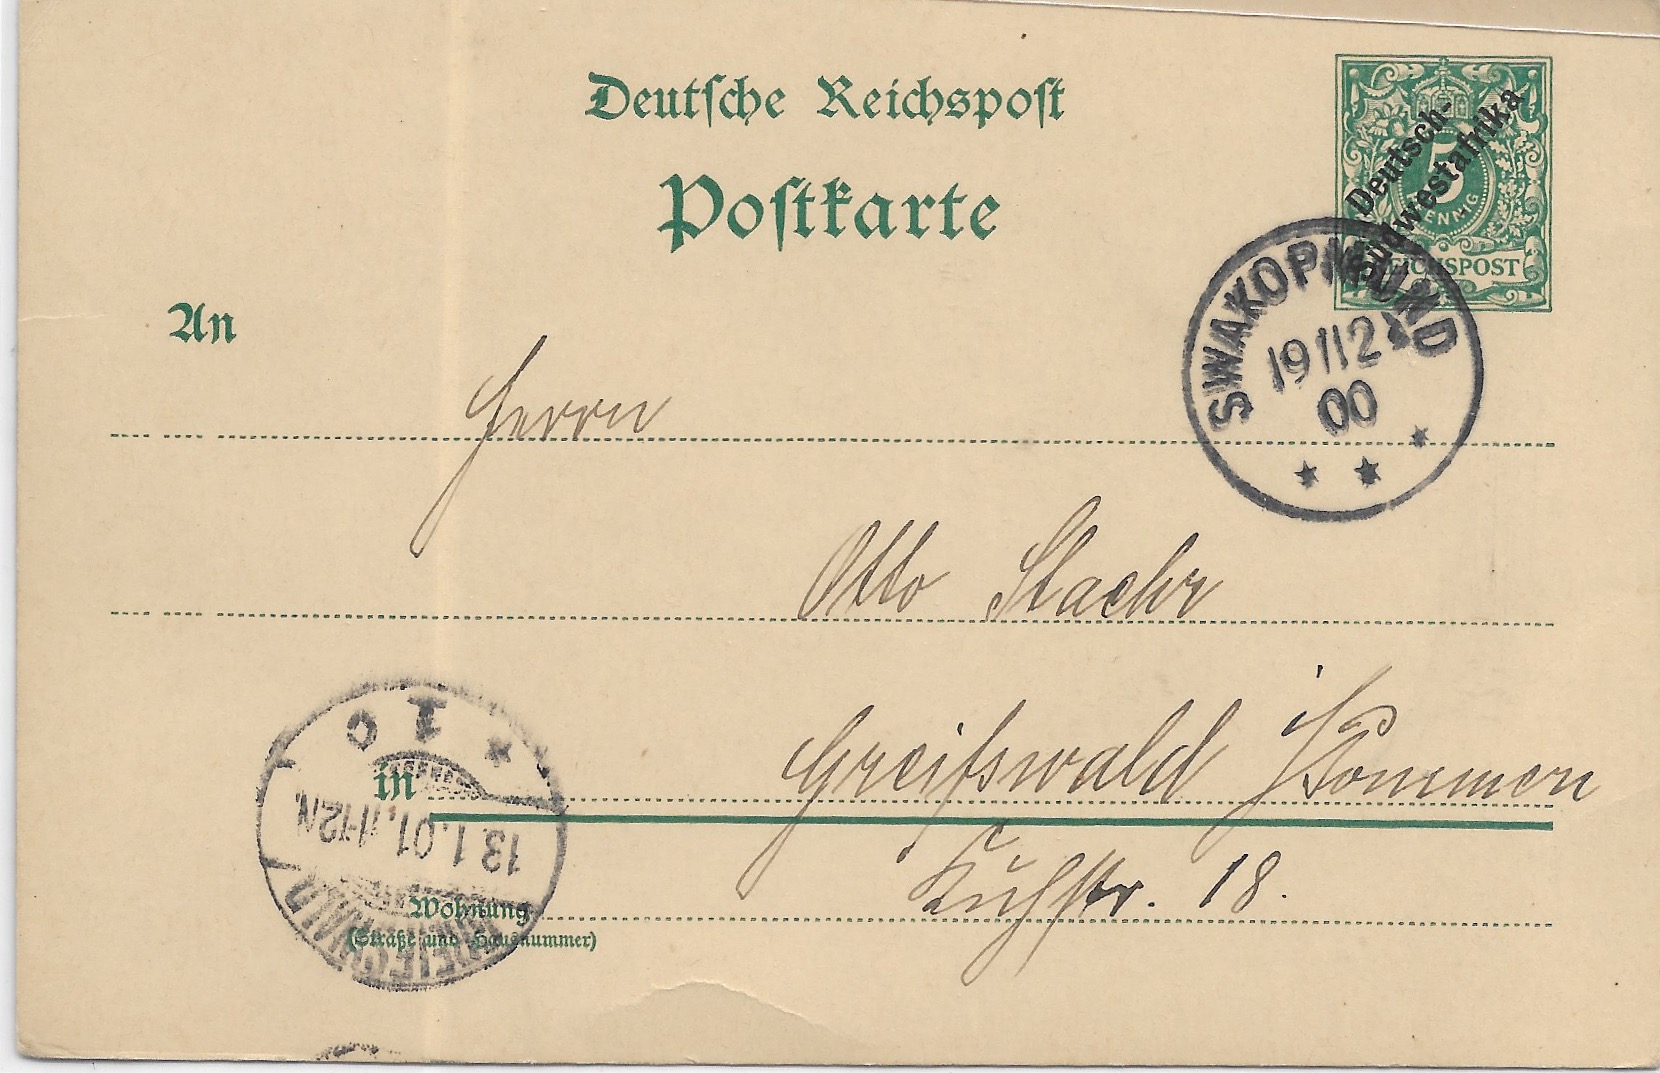 Deutsche Reichspost
Postkarte
Deutsch-
Südwestafrika
5
PFENNIG
REICHSPOST
SWAKOPMUND
19 11 2
00
An
Herrn
Otto Staehr
Greifswald i/Pommern
Kuhstr. 18.
in
Wohnung
(Straße und Hausnummer)
GREIFSWALD
13.1.01.11-12N.
* 1 c